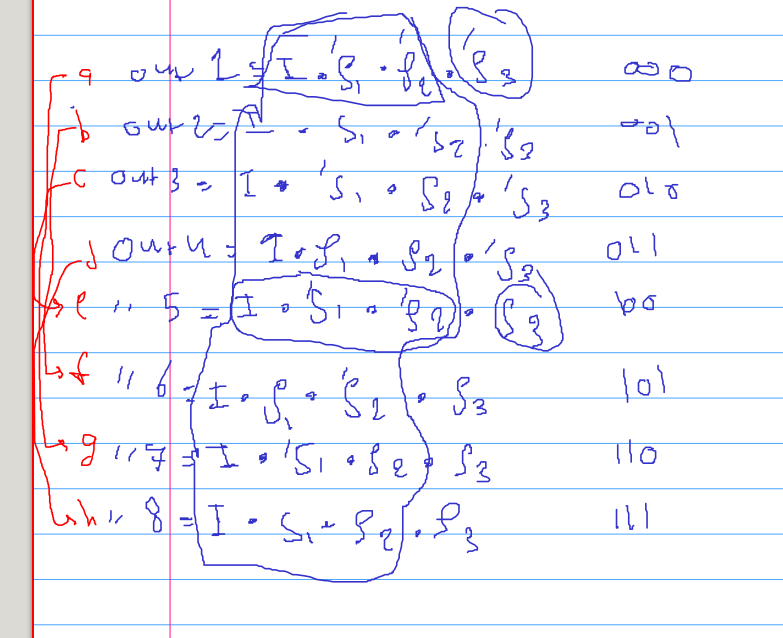 a out 1 = I . 'S1 . 'S2 . 'S3 000
b out 2 = I . S1 . 'S2 . 'S3 001
c out 3 = I . 'S1 . S2 . 'S3 010
d out 4 = I . S1 . S2 . 'S3 011
e " 5 = I . 'S1 . 'S2 . S3 100
f " 6 = I . S1 . 'S2 . S3 101
g " 7 = I . 'S1 . S2 . S3 110
h " 8 = I . S1 . S2 . S3 111